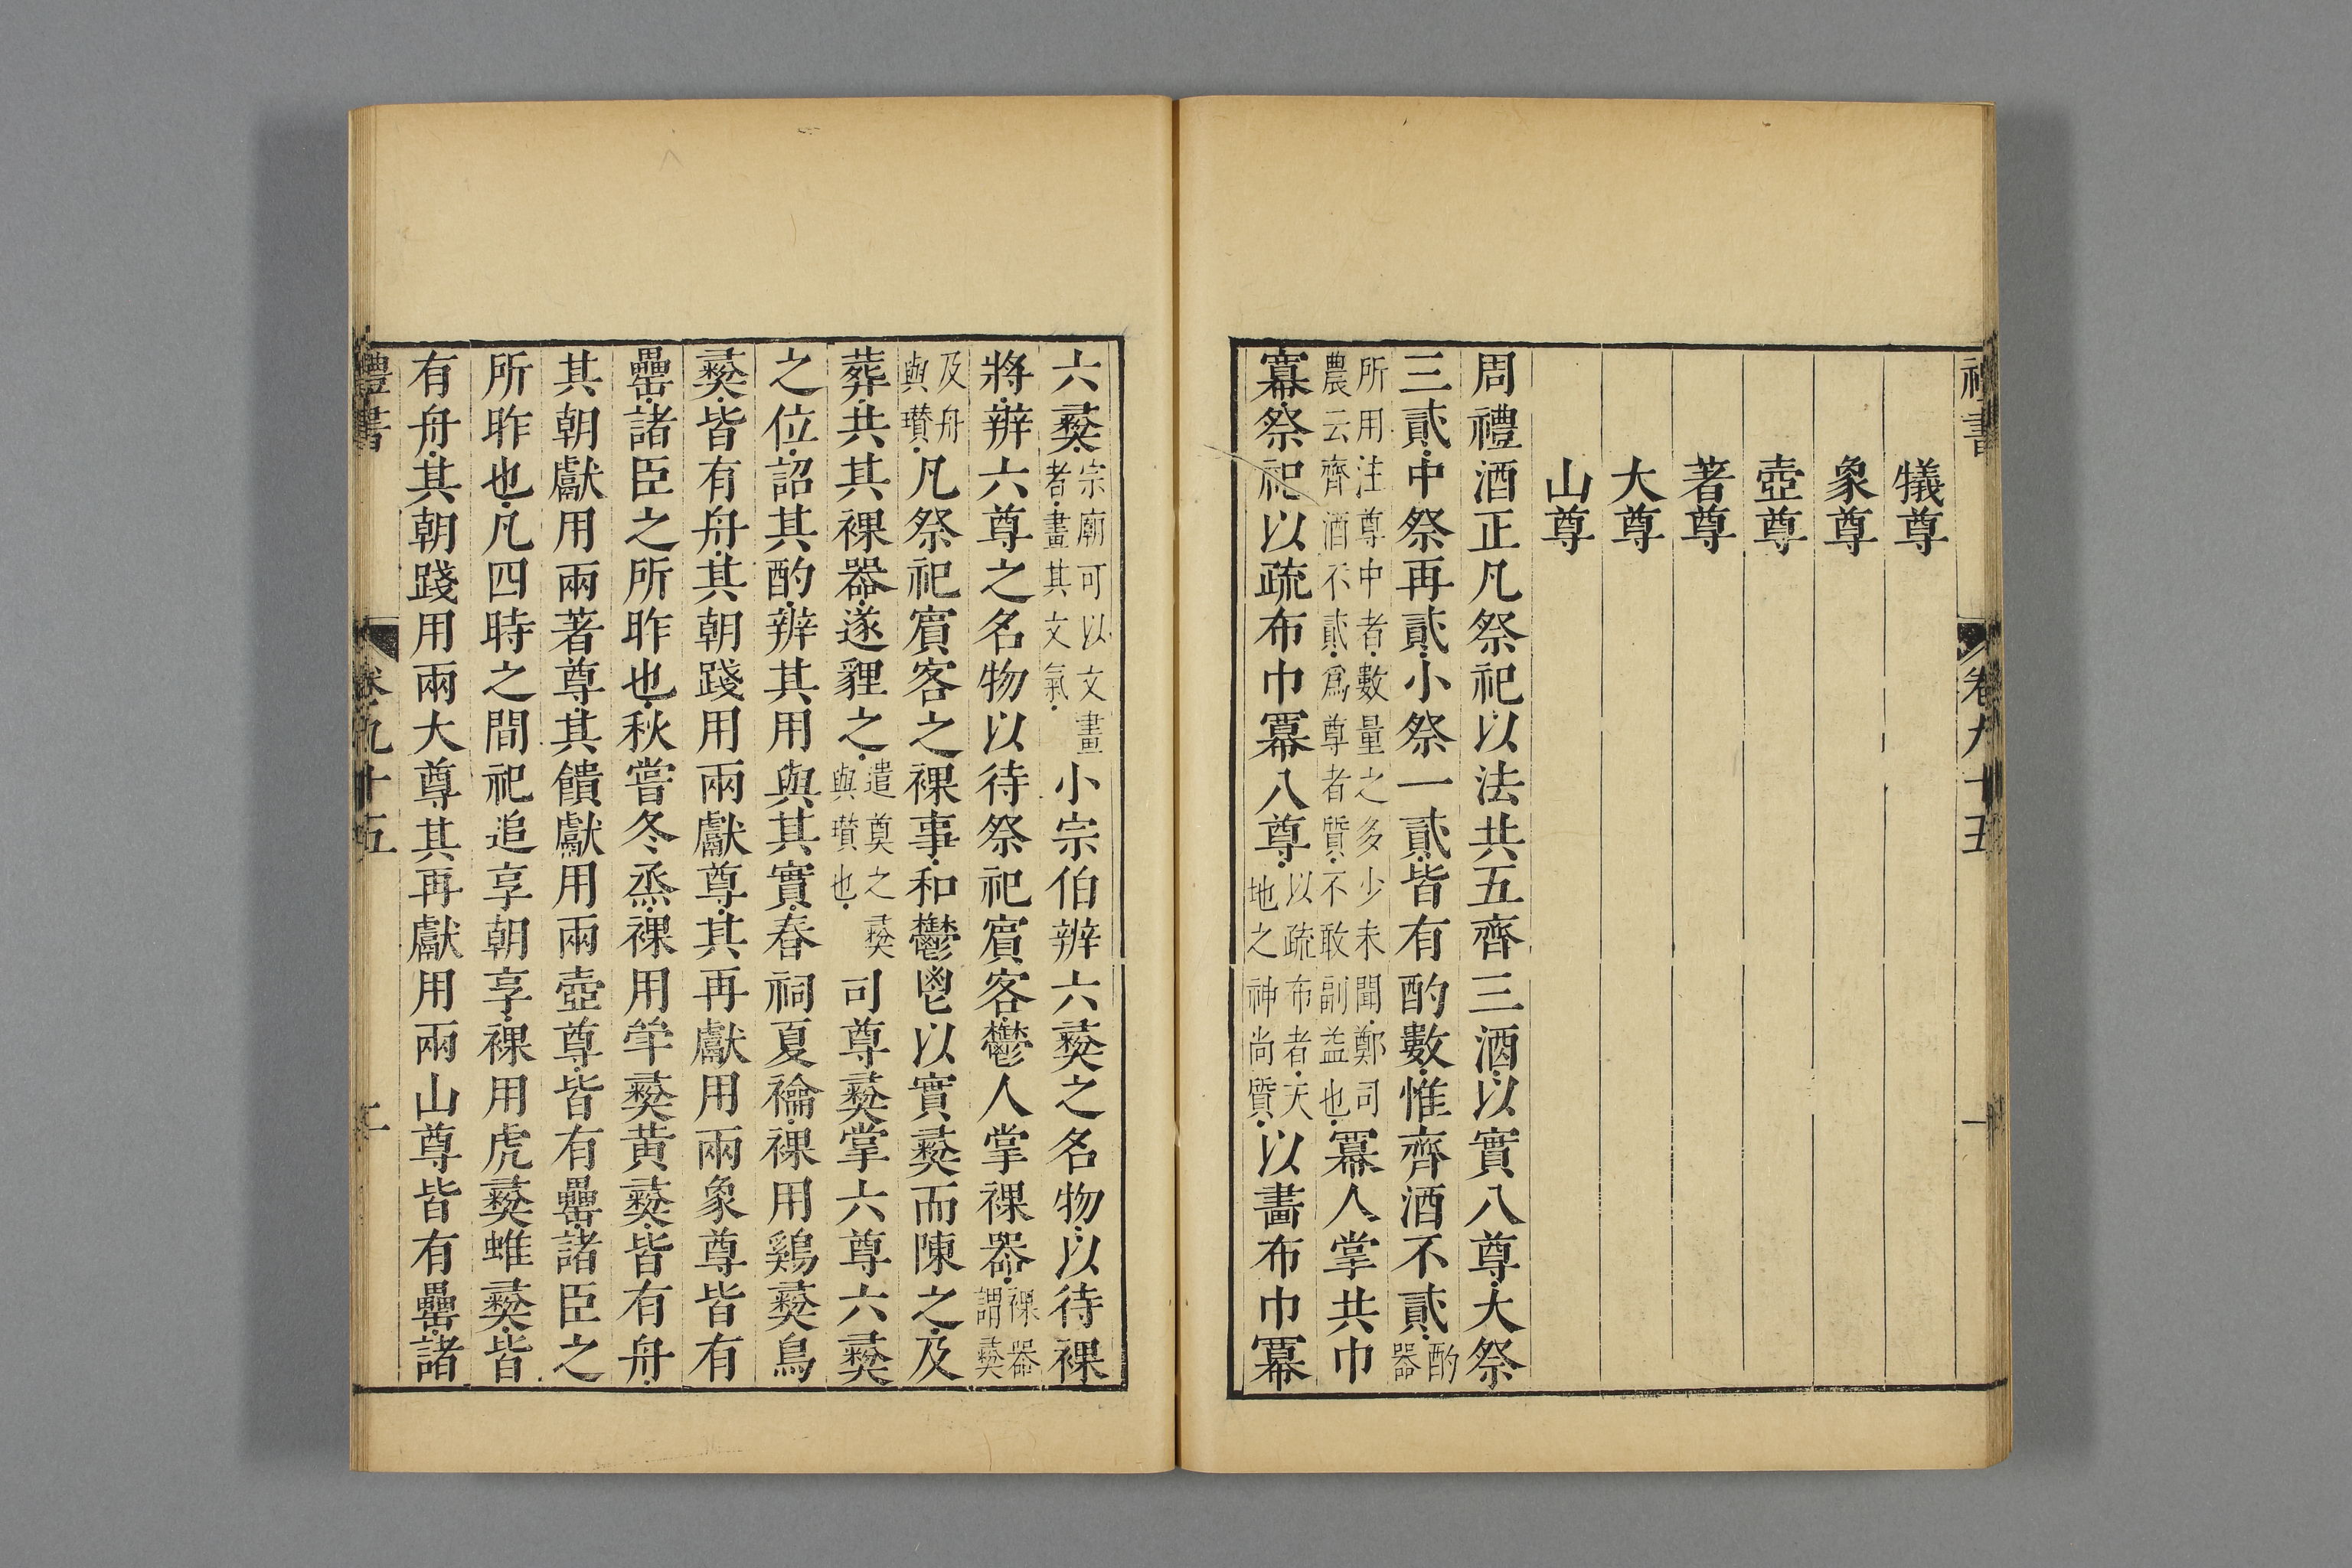 禮書
卷九十五
一
犧尊
象尊
壺尊
著尊
大尊
山尊
周禮酒正凡祭祀以法共五齊三酒以實八尊大祭
三貳中祭再貳小祭一貳皆有酌數惟齊酒不貳酌器
所用注尊中者數量之多少未聞鄭司農云齊酒不貳為尊者質不敢副益也冪人掌共巾
冪祭祀以疏布巾冪八尊以疏布者天地之神尚質以畫布巾冪
六彝宗廟可以文畫者畫其文氣小宗伯辨六彝之名物以待祼
將辨六尊之名物以待祭祀賓客鬱人掌祼器祼器謂彝
及舟與瓚凡祭祀賓客之祼事和鬱鬯以實彝而陳之及
葬共其祼器遂貍之遣奠之彝與瓚也司尊彝掌六尊六彝
之位詔其酌辨其用與其實春祠夏禴祼用鷄彝鳥
彝皆有舟其朝踐用兩獻尊其再獻用兩象尊皆有
罍諸臣之所昨也秋嘗冬烝祼用斝彝黃彝皆有舟
其朝獻用兩著尊其饋獻用兩壺尊皆有罍諸臣之
所昨也凡四時之間祀追享朝享祼用虎彝蜼彝皆
有舟其朝踐用兩大尊其再獻用兩山尊皆有罍諸
禮書
卷九十五
二